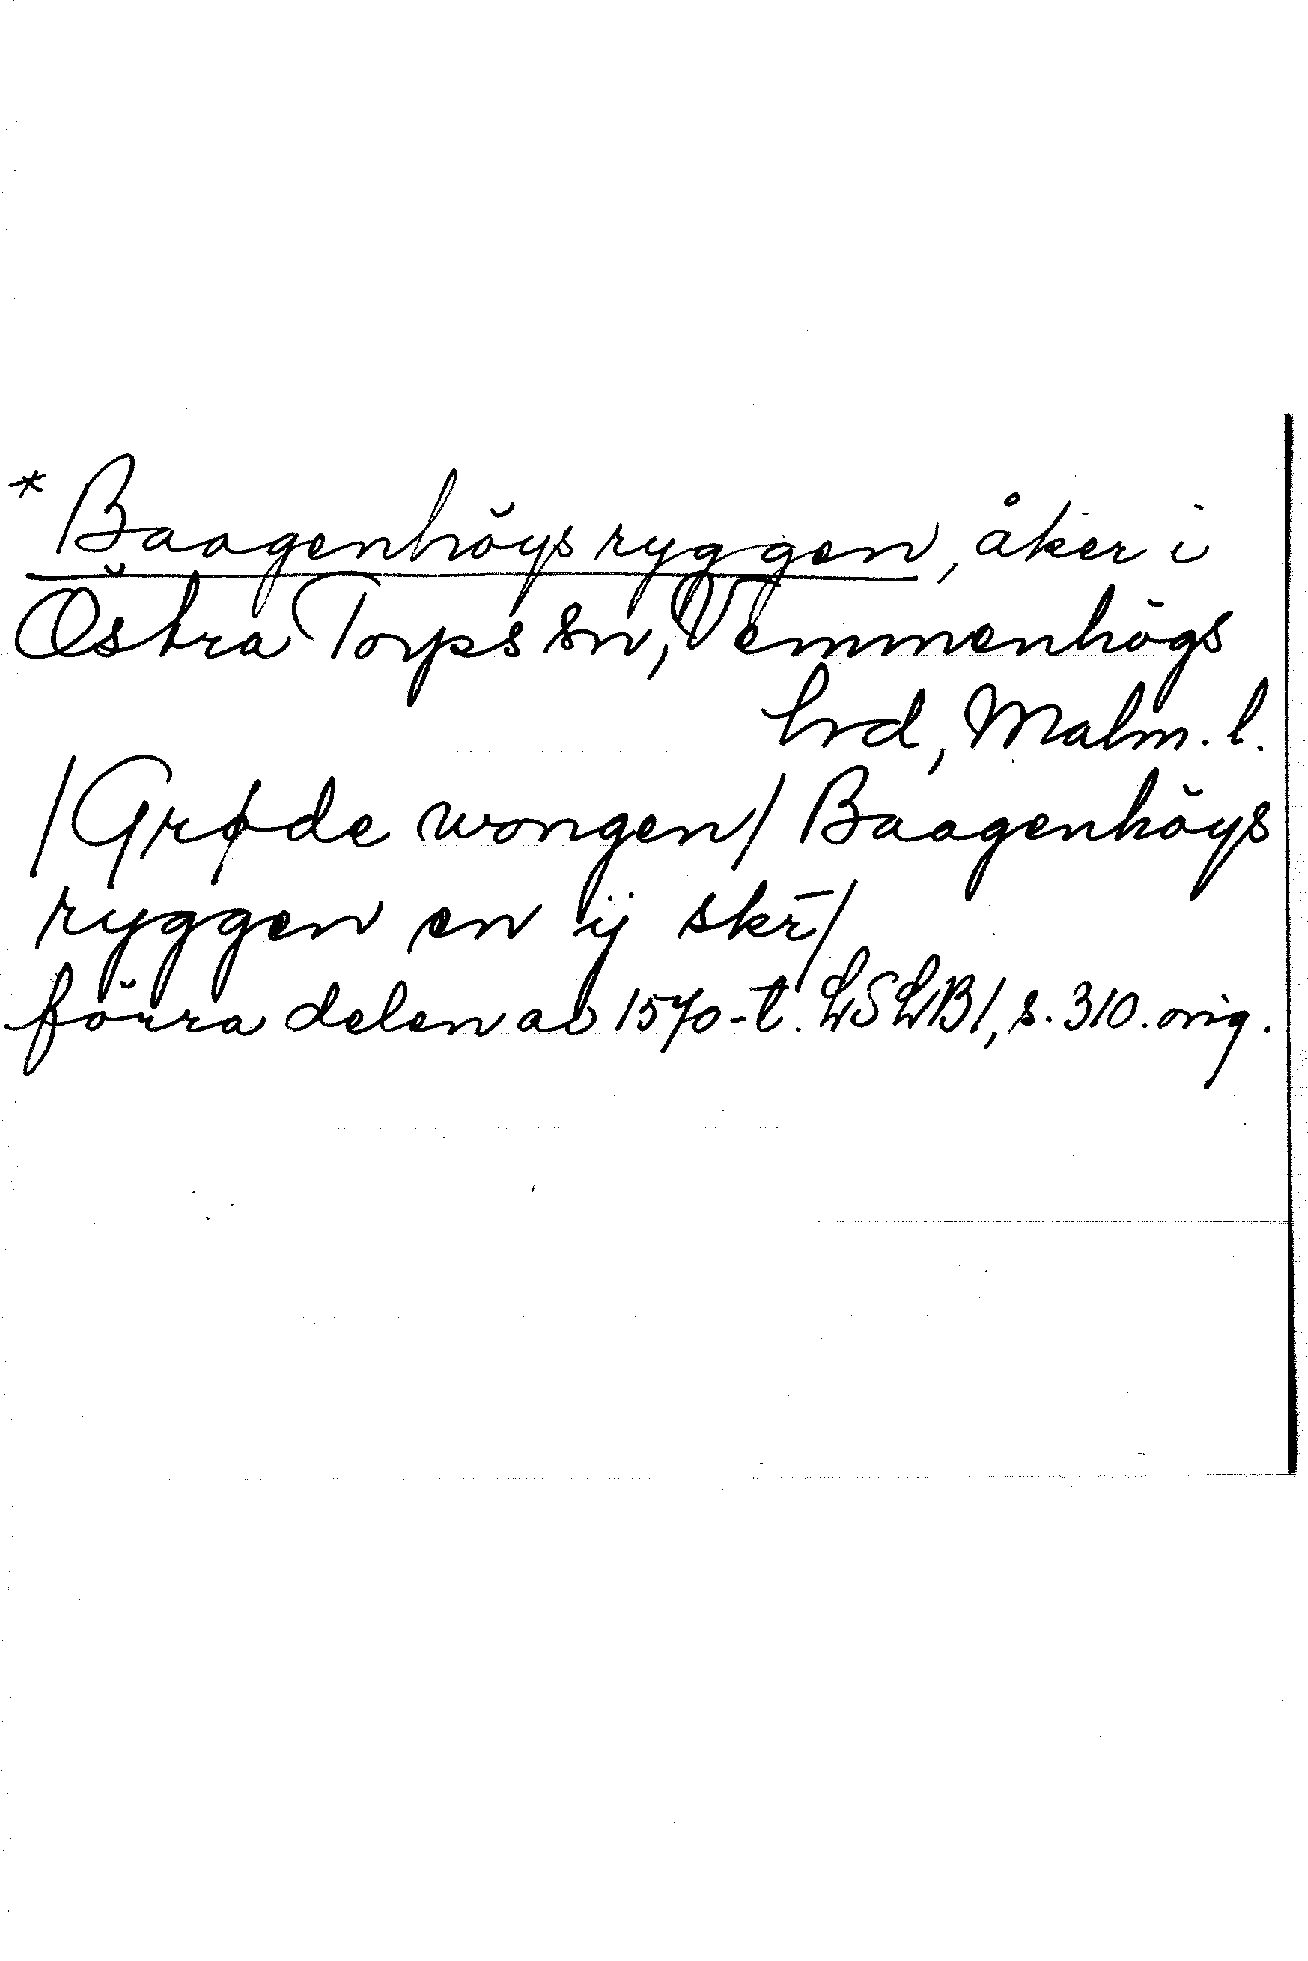 * Baagenhöysryggen, åker i
Östra Torps sn, Vemmenhögs
hrd, Malm. l.
/Grøde wongen/ Baagenhöys
ryggen en ij skr̄/
förra delen av 1570-t. LSLB 1, s. 310. orig.